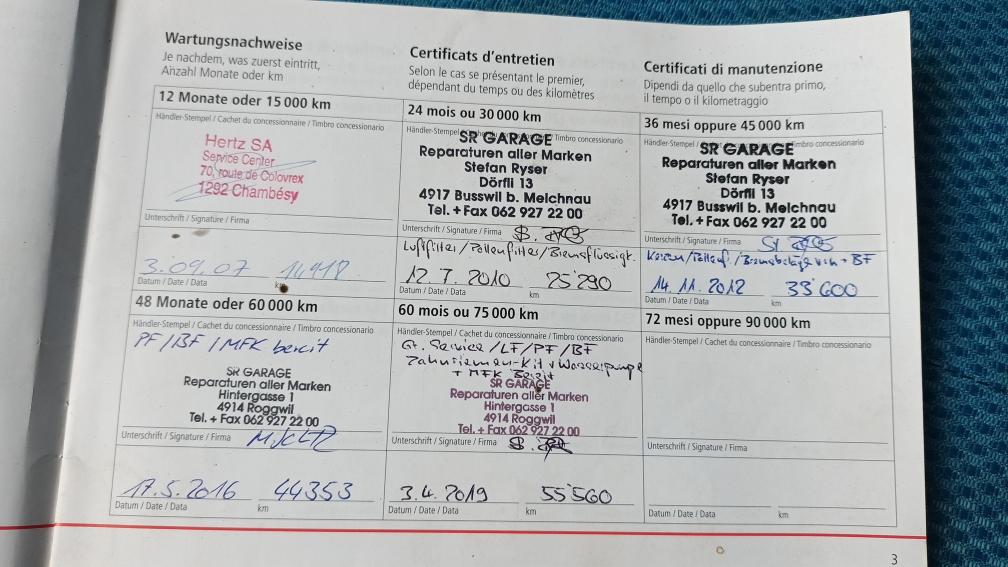 Wartungsnachweise
Je nachdem, was zuerst eintritt,
Anzahl Monate oder km
Certificats d'entretien
Selon le cas se présentant le premier,
dépendant du temps ou des kilomètres
Certificati di manutenzione
Dipendi da quello che subentra primo,
il tempo o il kilometraggio
12 Monate oder 15 000 km
Händler-Stempel / Cachet du concessionnaire / Timbro concessionario
Hertz SA
Service Center
70, route de Colovrex
1292 Chambésy
Unterschrift / Signature / Firma
3.09.07
Datum / Date / Data
km
24 mois ou 30 000 km
Händler-Stempel
Timbro concessionario
SR GARAGE
Reparaturen aller Marken
Stefan Ryser
Dörfli 13
4917 Busswil b. Melchnau
Tel. + Fax 062 927 22 00
Unterschrift / Signature / Firma
Luftfilter/Pollenfilter/Bremsflüssigt.
12.7.2010 25'290
Datum / Date / Data km
36 mesi oppure 45 000 km
Händler-Stempel
Timbro concessionario
SR GARAGE
Reparaturen aller Marken
Stefan Ryser
Dörfli 13
4917 Busswil b. Melchnau
Tel. + Fax 062 927 22 00
Unterschrift / Signature / Firma
Kerzen/Pollenf./Bremsbeläge + BF
14.11.2012 33'600
Datum / Date / Data km
48 Monate oder 60 000 km
Händler-Stempel / Cachet du concessionnaire / Timbro concessionario
PF/BF/MFK bereit
SR GARAGE
Reparaturen aller Marken
Hintergasse 1
4914 Roggwil
Tel. + Fax 062 927 22 00
Unterschrift / Signature / Firma
17.5.2016 44353
Datum / Date / Data km
60 mois ou 75 000 km
Händler-Stempel / Cachet du concessionnaire / Timbro concessionario
Gr. Service/LF/PF/BF
Zahnriemen-Kit + Wasserpumpe
+ MFK Bereit
SR GARAGE
Reparaturen aller Marken
Hintergasse 1
4914 Roggwil
Tel. + Fax 062 927 22 00
Unterschrift / Signature / Firma
3.4.2019 55'560
Datum / Date / Data km
72 mesi oppure 90 000 km
Händler-Stempel / Cachet du concessionnaire / Timbro concessionario
Unterschrift / Signature / Firma
Datum / Date / Data km
3